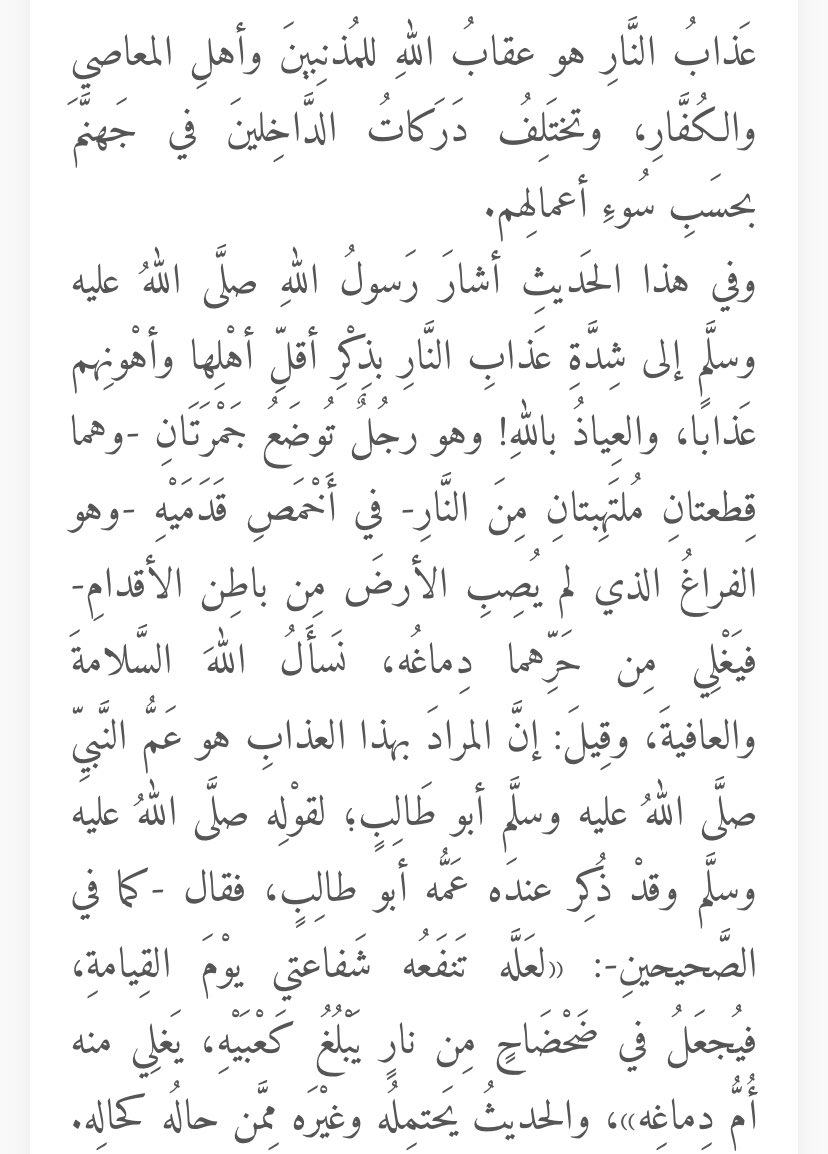 عَذابُ النَّارِ هو عقابُ اللهِ للمُذنِبينَ وأهلِ المعاصي
والكُفَّارِ، وتختَلِفُ دَرَكاتُ الدَّاخِلينَ في جَهنَّمَ
بحسَبِ سُوءِ أعمالِهم.
وفي هذا الحَديثِ أشارَ رَسولُ اللهِ صلَّى اللهُ عليه
وسلَّم إلى شِدَّةِ عَذابِ النَّارِ بذِكْرِ أقلِّ أهْلِها وأهْونِهم
عَذابًا، والعِياذُ باللهِ! وهو رجُلٌ تُوضَعُ جَمْرَتَانِ -وهما
قِطعتانِ مُلتَهِبتانِ مِنَ النَّارِ- في أَخْمَصِ قَدَمَيْهِ -وهو
الفراغُ الذي لم يُصِبِ الأرضَ مِن باطِن الأقدامِ-
فيَغْلِي مِن حَرِّهما دِماغُه، نَسأَلُ اللهَ السَّلامةَ
والعافيةَ، وقِيلَ: إنَّ المرادَ بهذا العذابِ هو عَمُّ النَّبيِّ
صلَّى اللهُ عليه وسلَّم أبو طَالِبٍ؛ لقوْلِه صلَّى اللهُ عليه
وسلَّم وقدْ ذُكِر عندَه عَمُّه أبو طالِبٍ، فقال -كما في
الصَّحيحينِ-: «لعَلَّه تَنفَعُه شَفاعتي يوْمَ القِيامةِ،
فيُجعَلُ في ضَحْضَاحٍ مِن نارٍ يَبْلُغُ كَعْبَيْهِ، يَغلِي منه
أُمُّ دِماغِه»، والحديثُ يَحتمِلُه وغيْرَه مِمَّن حالُه كحالِه.